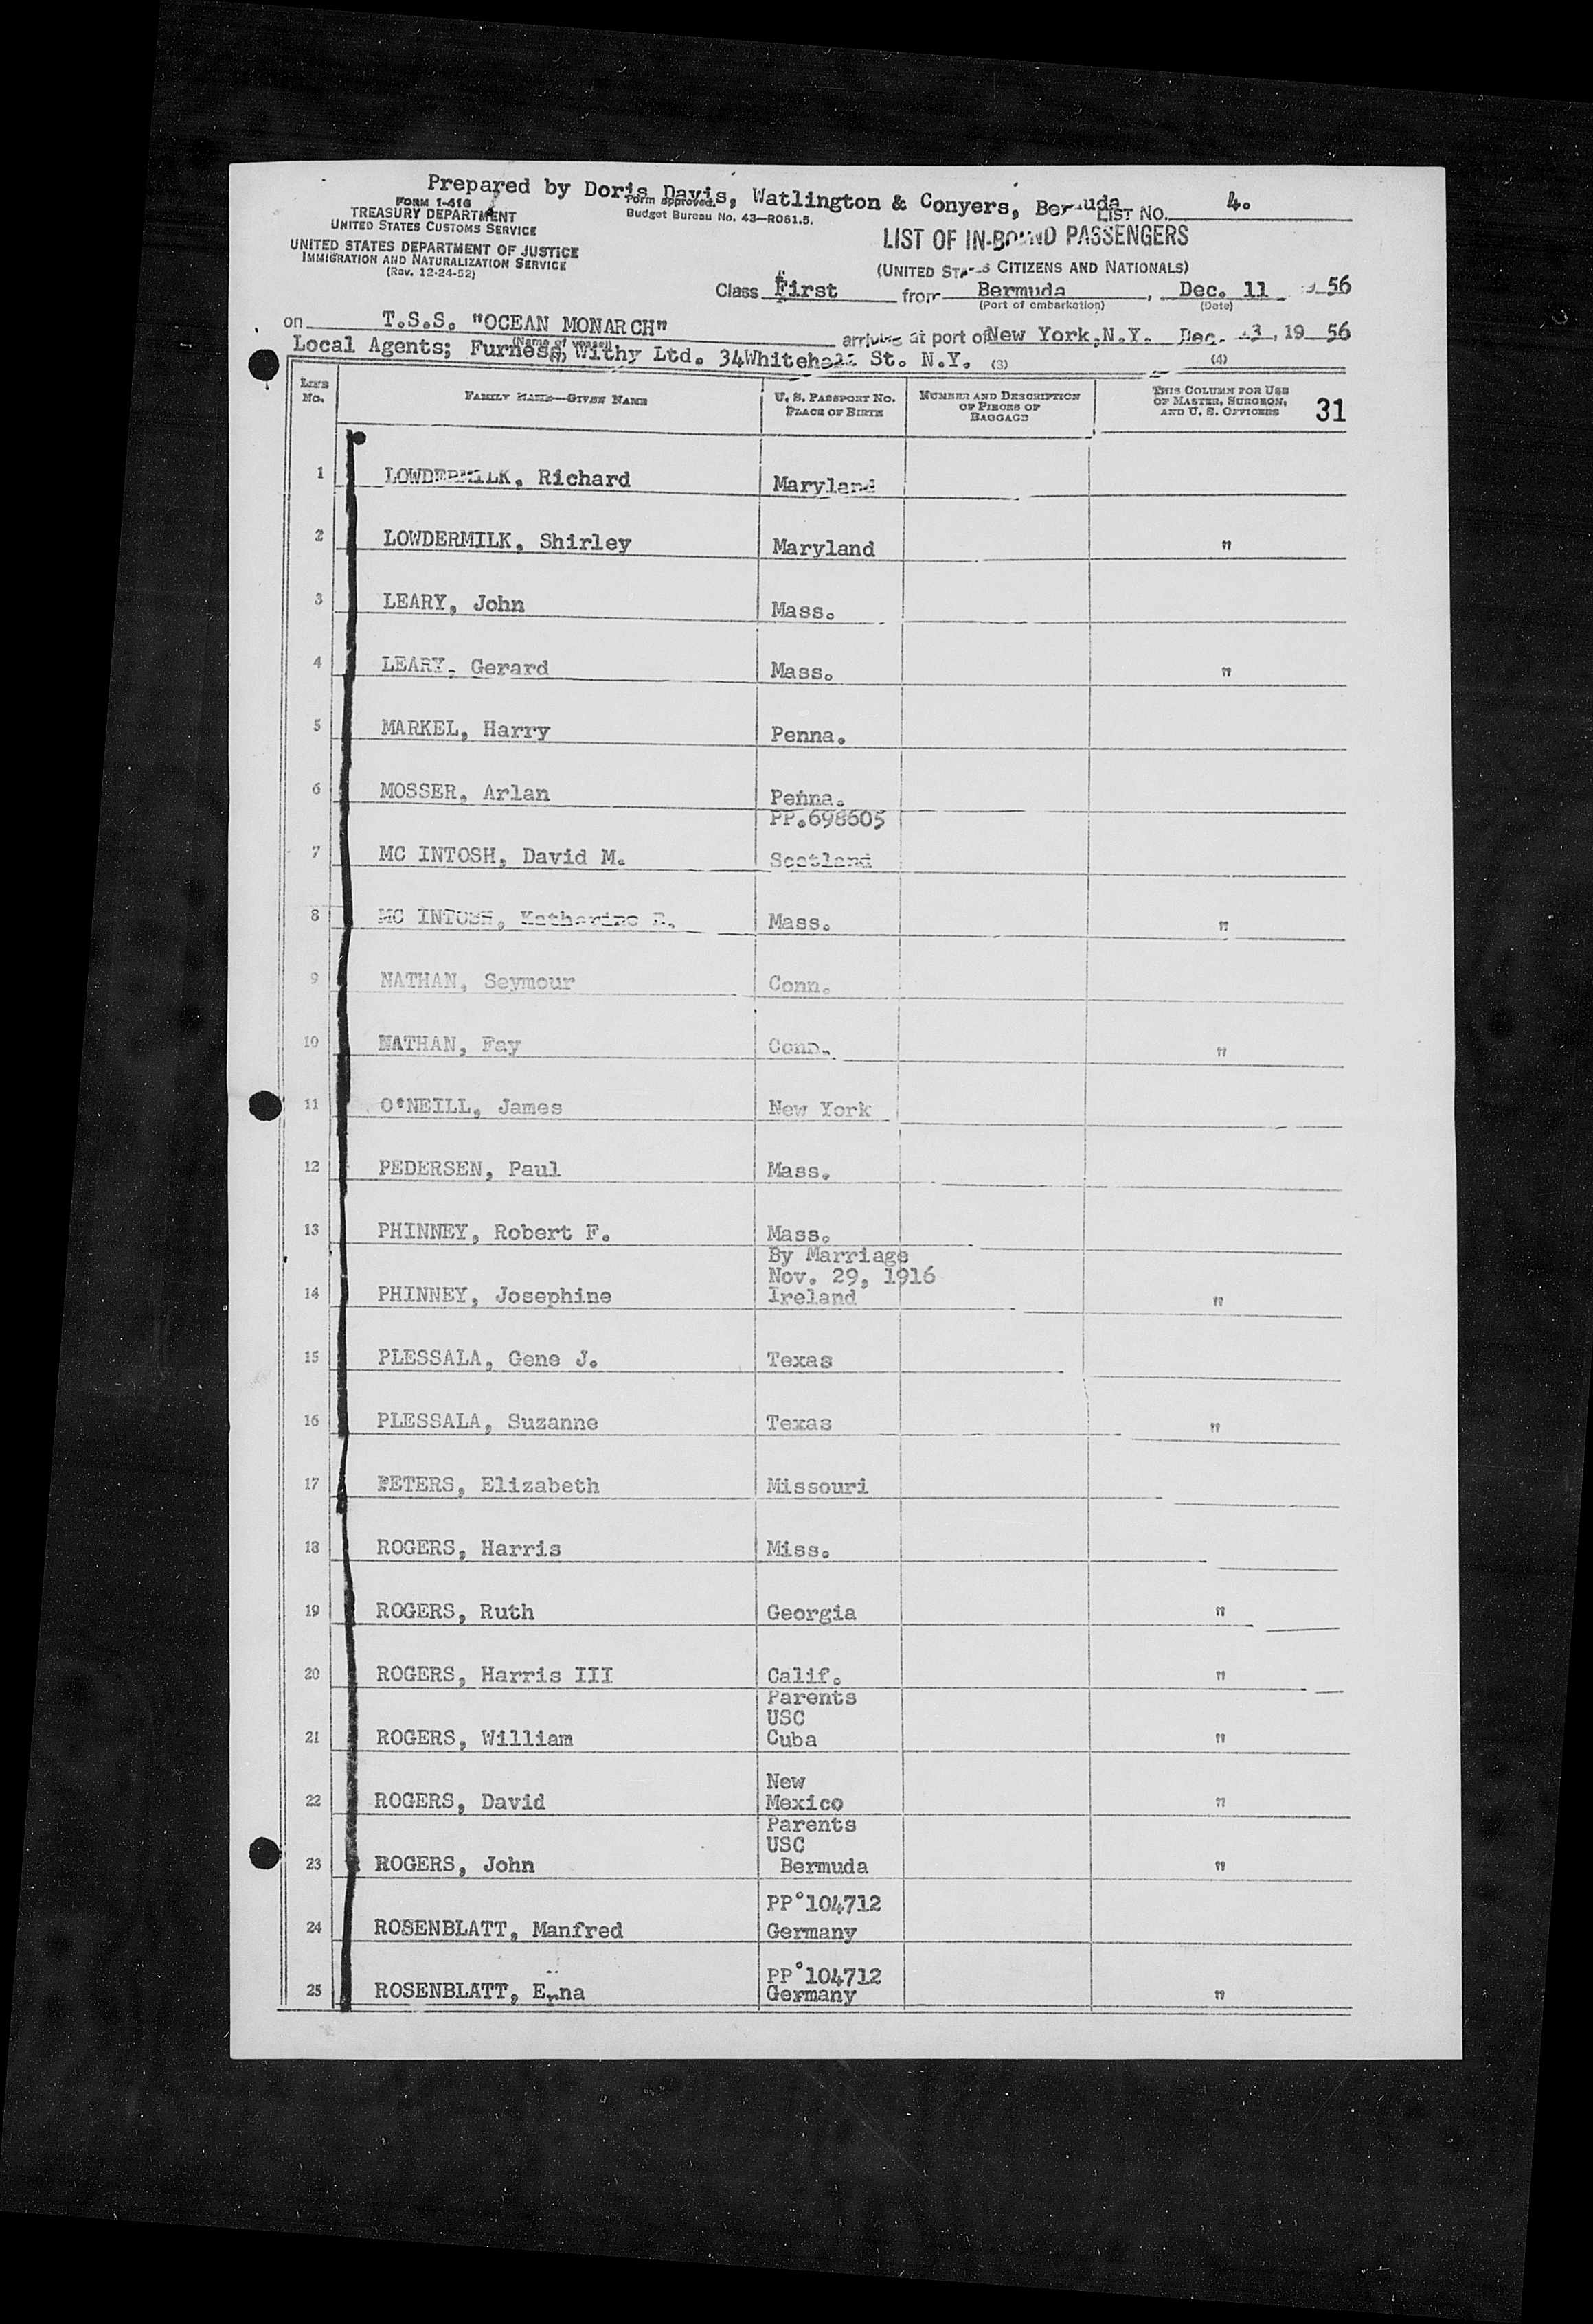 Prepared by Doris Davis, Watlington & Conyers, Bermuda
LIST NO. 4.
FORM I-416
TREASURY DEPARTMENT
UNITED STATES CUSTOMS SERVICE
Form approved.
Budget Bureau No. 43—R061.5.
UNITED STATES DEPARTMENT OF JUSTICE
IMMIGRATION AND NATURALIZATION SERVICE
(Rev. 12-24-52)
LIST OF IN-BOUND PASSENGERS
(UNITED STATES CITIZENS AND NATIONALS)
Class First from Bermuda, Dec. 11 1956
(Port of embarkation) (Date)
on T.S.S. "OCEAN MONARCH" arriving at port of New York, N.Y. Dec. 13, 19 56
(Name of vessel)
Local Agents; Furness, Withy Ltd. 34Whitehall St. N.Y. (3) (4)
LINE No. FAMILY NAME—GIVEN NAME U. S. PASSPORT NO. PLACE OF BIRTH NUMBER AND DESCRIPTION OF PIECES OF BAGGAGE THIS COLUMN FOR USE OF MASTER, SURGEON, AND U. S. OFFICERS 31
1 LOWDERMILK, Richard Maryland
2 LOWDERMILK, Shirley Maryland "
3 LEARY, John Mass.
4 LEARY, Gerard Mass. "
5 MARKEL, Harry Penna.
6 MOSSER, Arlan Penna.
PP.698605
7 MC INTOSH, David M. Scotland
8 MC INTOSH, Katharine Mass. "
9 NATHAN, Seymour Conn.
10 NATHAN, Fay Conn. "
11 O'NEILL, James New York
12 PEDERSEN, Paul Mass.
13 PHINNEY, Robert F. Mass.
By Marriage
Nov. 29, 1916
14 PHINNEY, Josephine Ireland "
15 PLESSALA, Gene J. Texas
16 PLESSALA, Suzanne Texas "
17 PETERS, Elizabeth Missouri
18 ROGERS, Harris Miss.
19 ROGERS, Ruth Georgia "
20 ROGERS, Harris III Calif. "
Parents
USC
21 ROGERS, William Cuba "
New
22 ROGERS, David Mexico "
Parents
USC
23 ROGERS, John Bermuda "
PP°104712
24 ROSENBLATT, Manfred Germany
PP°104712
25 ROSENBLATT, Erna Germany "